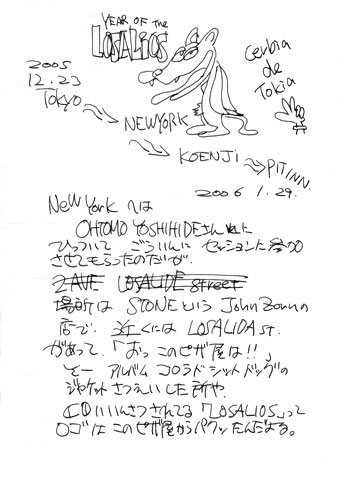 YEAR OF the
LOSALIOS
Cerbia
de
Tokia
2005
12.23
Tokyo
NEWYORK
KOENJI
PIT INN.
2006 1.29.
New York へは
OHTOMO YOSHIHIDEさんに
ひっついて ごういんに セッションに参加
させてもらったのだが、
2 AVE LOSAUDE street
場所は STONEという John Zornの
店で、近くには LOSALIDA st.
があって、「おっ このピザ屋は!!」
そー アルバム コロラド シット ドッグの
ジャケット さつえい した所や、
CDにいんさつされてる「LOSALIOS」って
ロゴは このピザ屋からパクッたんだよな。